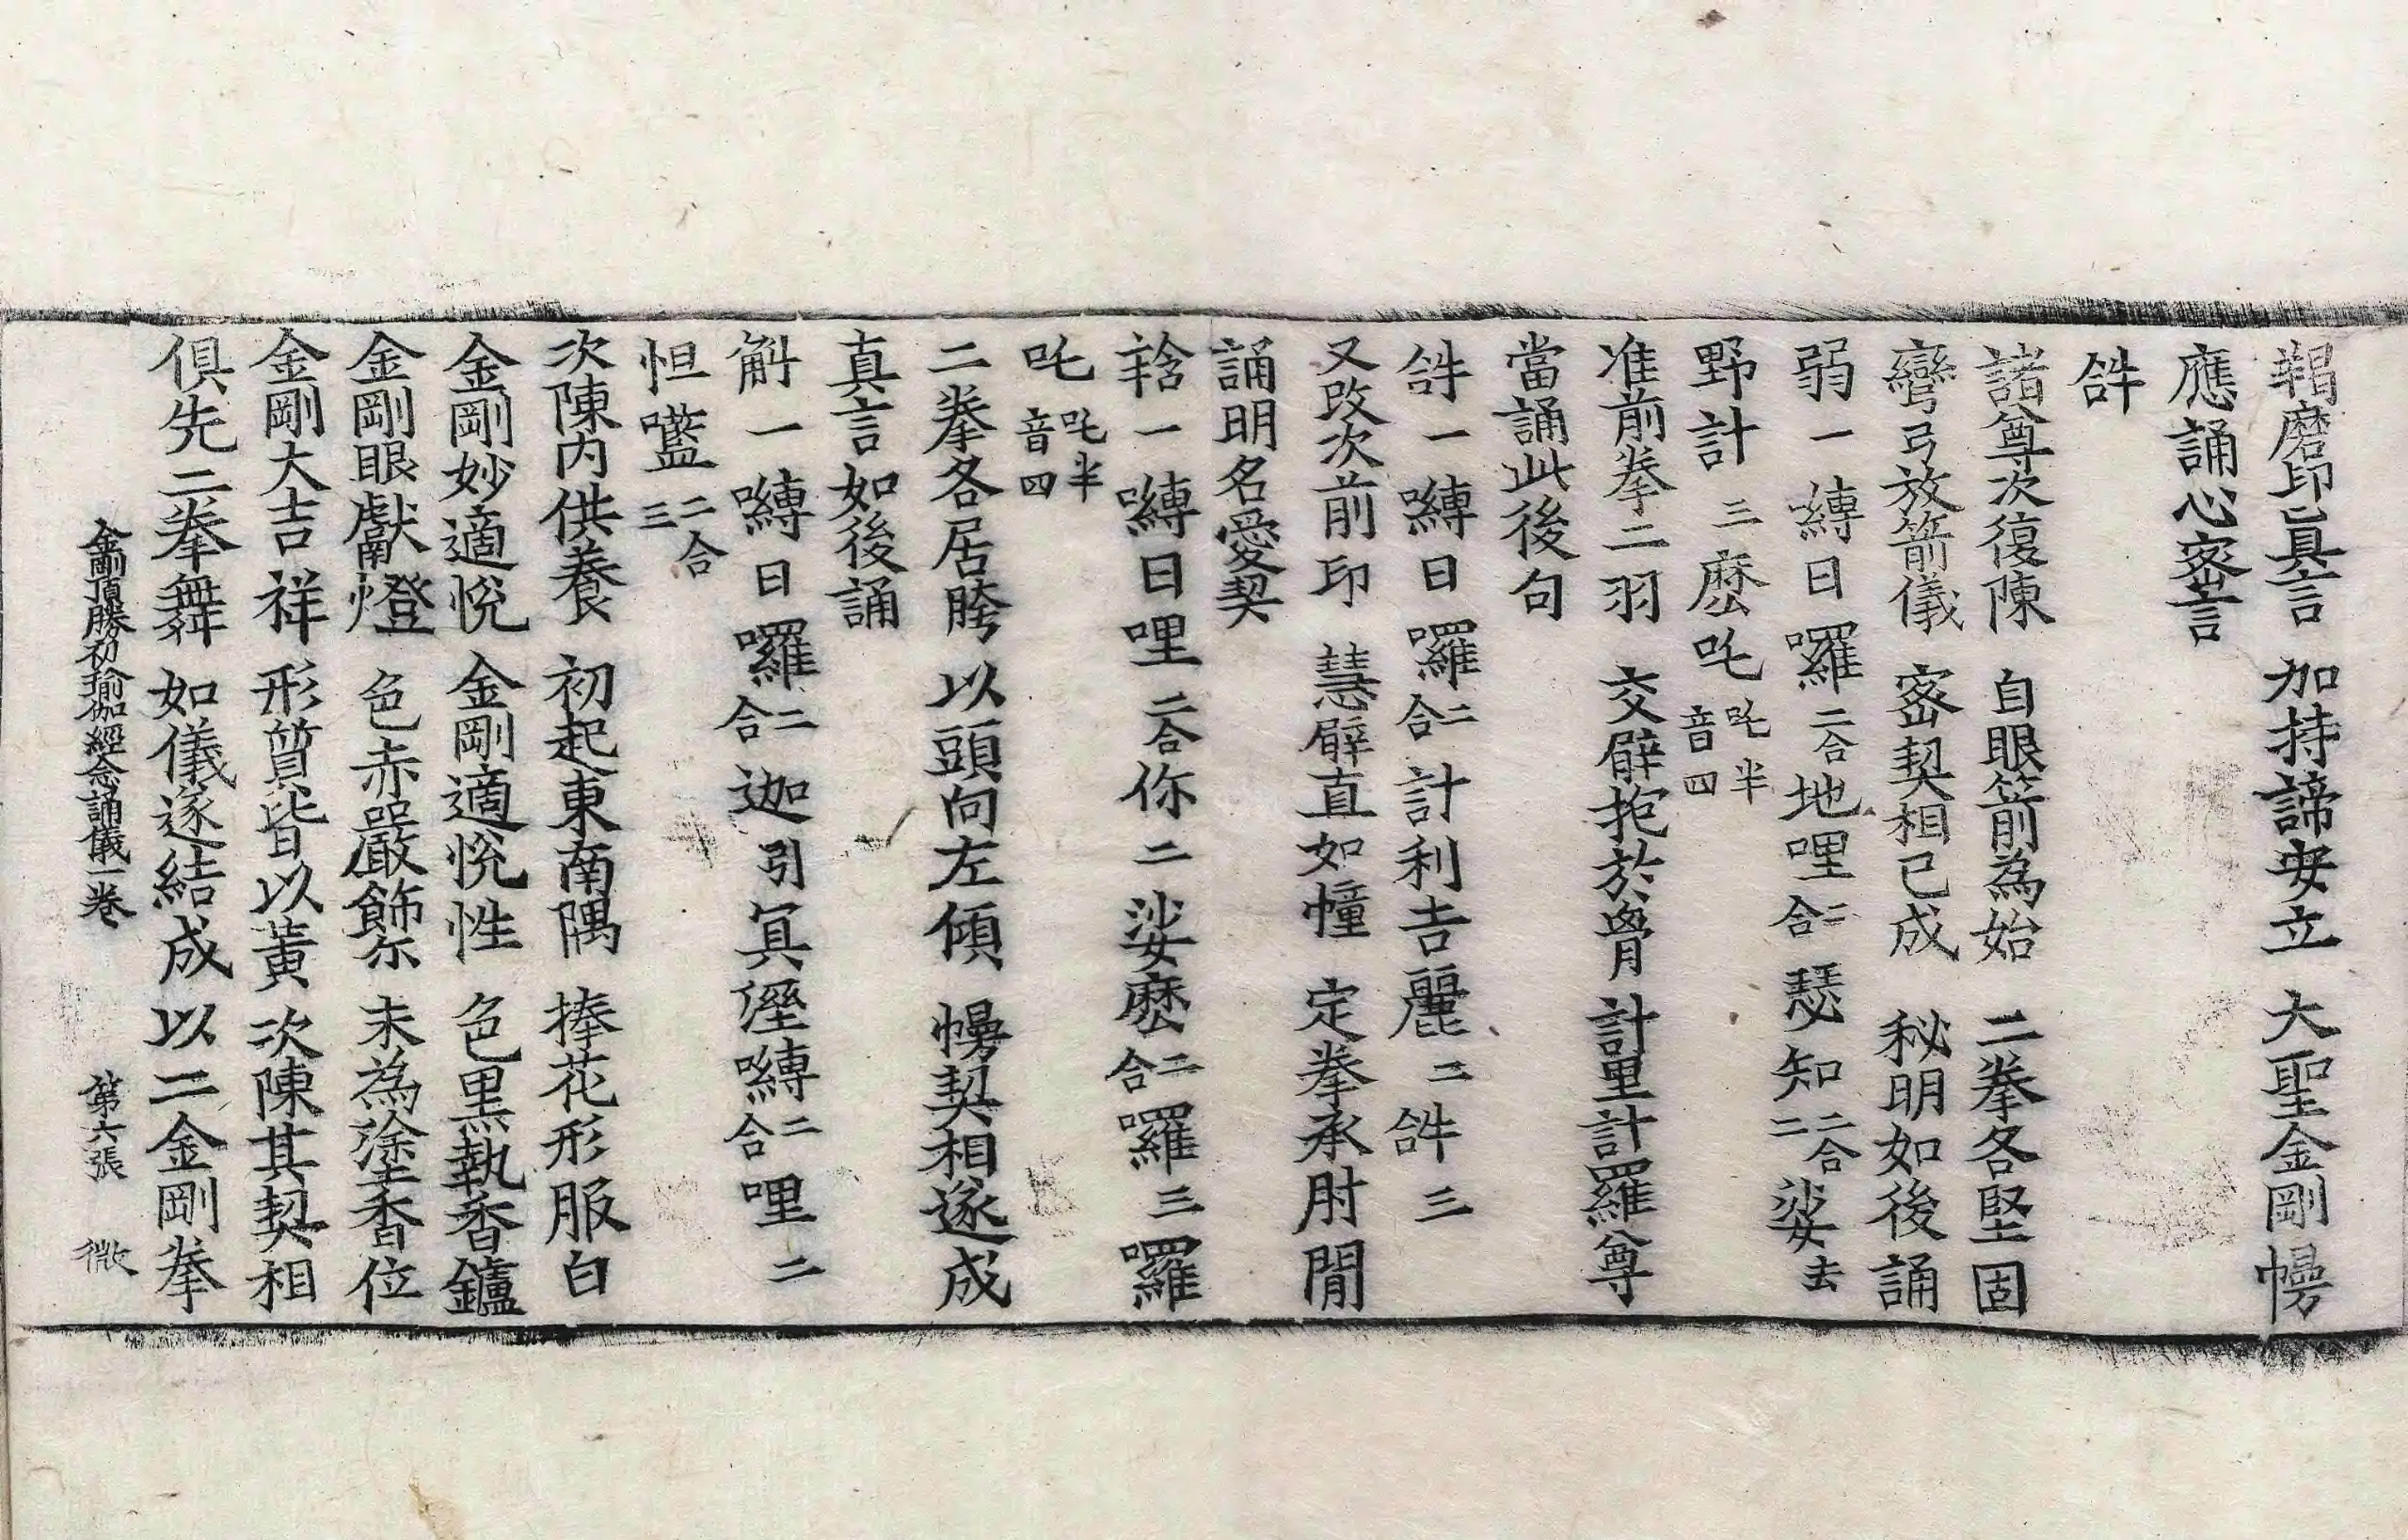 羯磨印真言　加持諦安立　大聖金剛慢
應誦心密言
𤙖
諸尊次復陳　自眼箭為始　二拳各堅固
彎弓放箭儀　密契相已成　秘明如後誦
弱一嚩日囉二合地哩二合瑟知二合二娑去
野計三麽吒吒半音四
准前拳二羽　交臂抱於胷　計里計羅尊
當誦此後句
𤙖一嚩日囉二合計利吉麗二𤙖三
又改次前印　慧臂直如幢　定拳承肘間
誦明名愛契
䤴一嚩日哩二合你二娑麽二合囉三囉
吒吒半音四
二拳各居胯　以頭向左傾　慢契相遂成
真言如後誦
斛一嚩日囉二合迦引冥𡃤嚩二合哩二
怛㘕二合三
次陳内供養　初起東南隅　捧花形服白
金剛妙適悅　金剛適悅性　色黑執香鑪
金剛眼獻燈　色赤嚴飾尒　末為塗香位
金剛大吉祥　形質皆以黃　次陳其契相
俱先二拳舞　如儀逐結成　以二金剛拳
金剛頂勝初瑜伽經念誦儀一卷　第六張　微